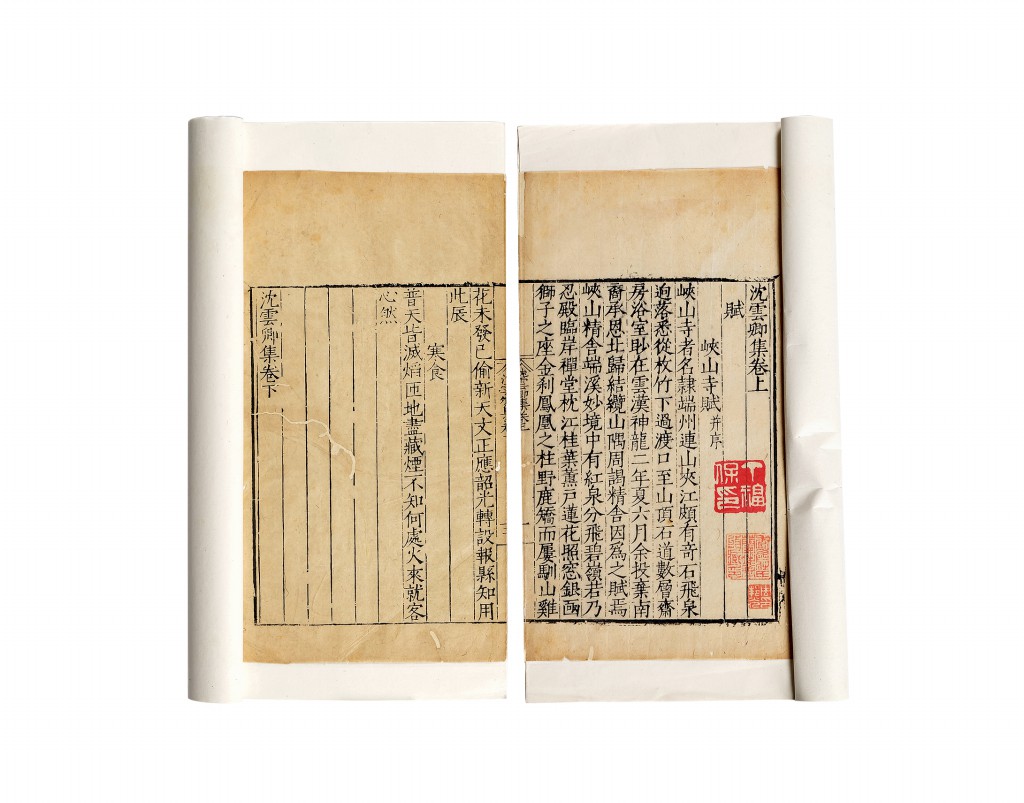 沈雲卿集卷上
賦
峽山寺賦并序
峽山寺者名隷端州連山夾江頗有奇石飛泉
迫落悉從枚竹下過渡口至山頂石道數層齋
房浴室眇在雲漢神龍二年夏六月余投棄南
裔承恩北歸結纜山隅周謁精舍因爲之賦焉
峽山精舍端溪妙境中有紅泉分飛碧嶺若乃
忍殿臨岸禪堂枕江桂葉薰戸蓮花照窓銀函
獅子之座金利鳳凰之柱野鹿矯而屢馴山雞
花未發已偷新天文正應韶光轉設報縣知用
此辰
寒食
普天皆滅熖匝地盡藏煙不知何處火來就客
心然
沈雲卿集卷下
丁福保印